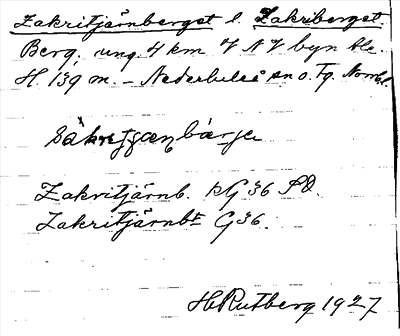 Zakritjärnberget l. Zakriberget.
Berg, ung. 4 km V N V byn Ale.
H. 139 m. — Nederluleå sn o. Tg. Norrb.
Zakritjärnb. kG 36 SO.
Zakritjärnbt G 36.
H Rutberg 1927